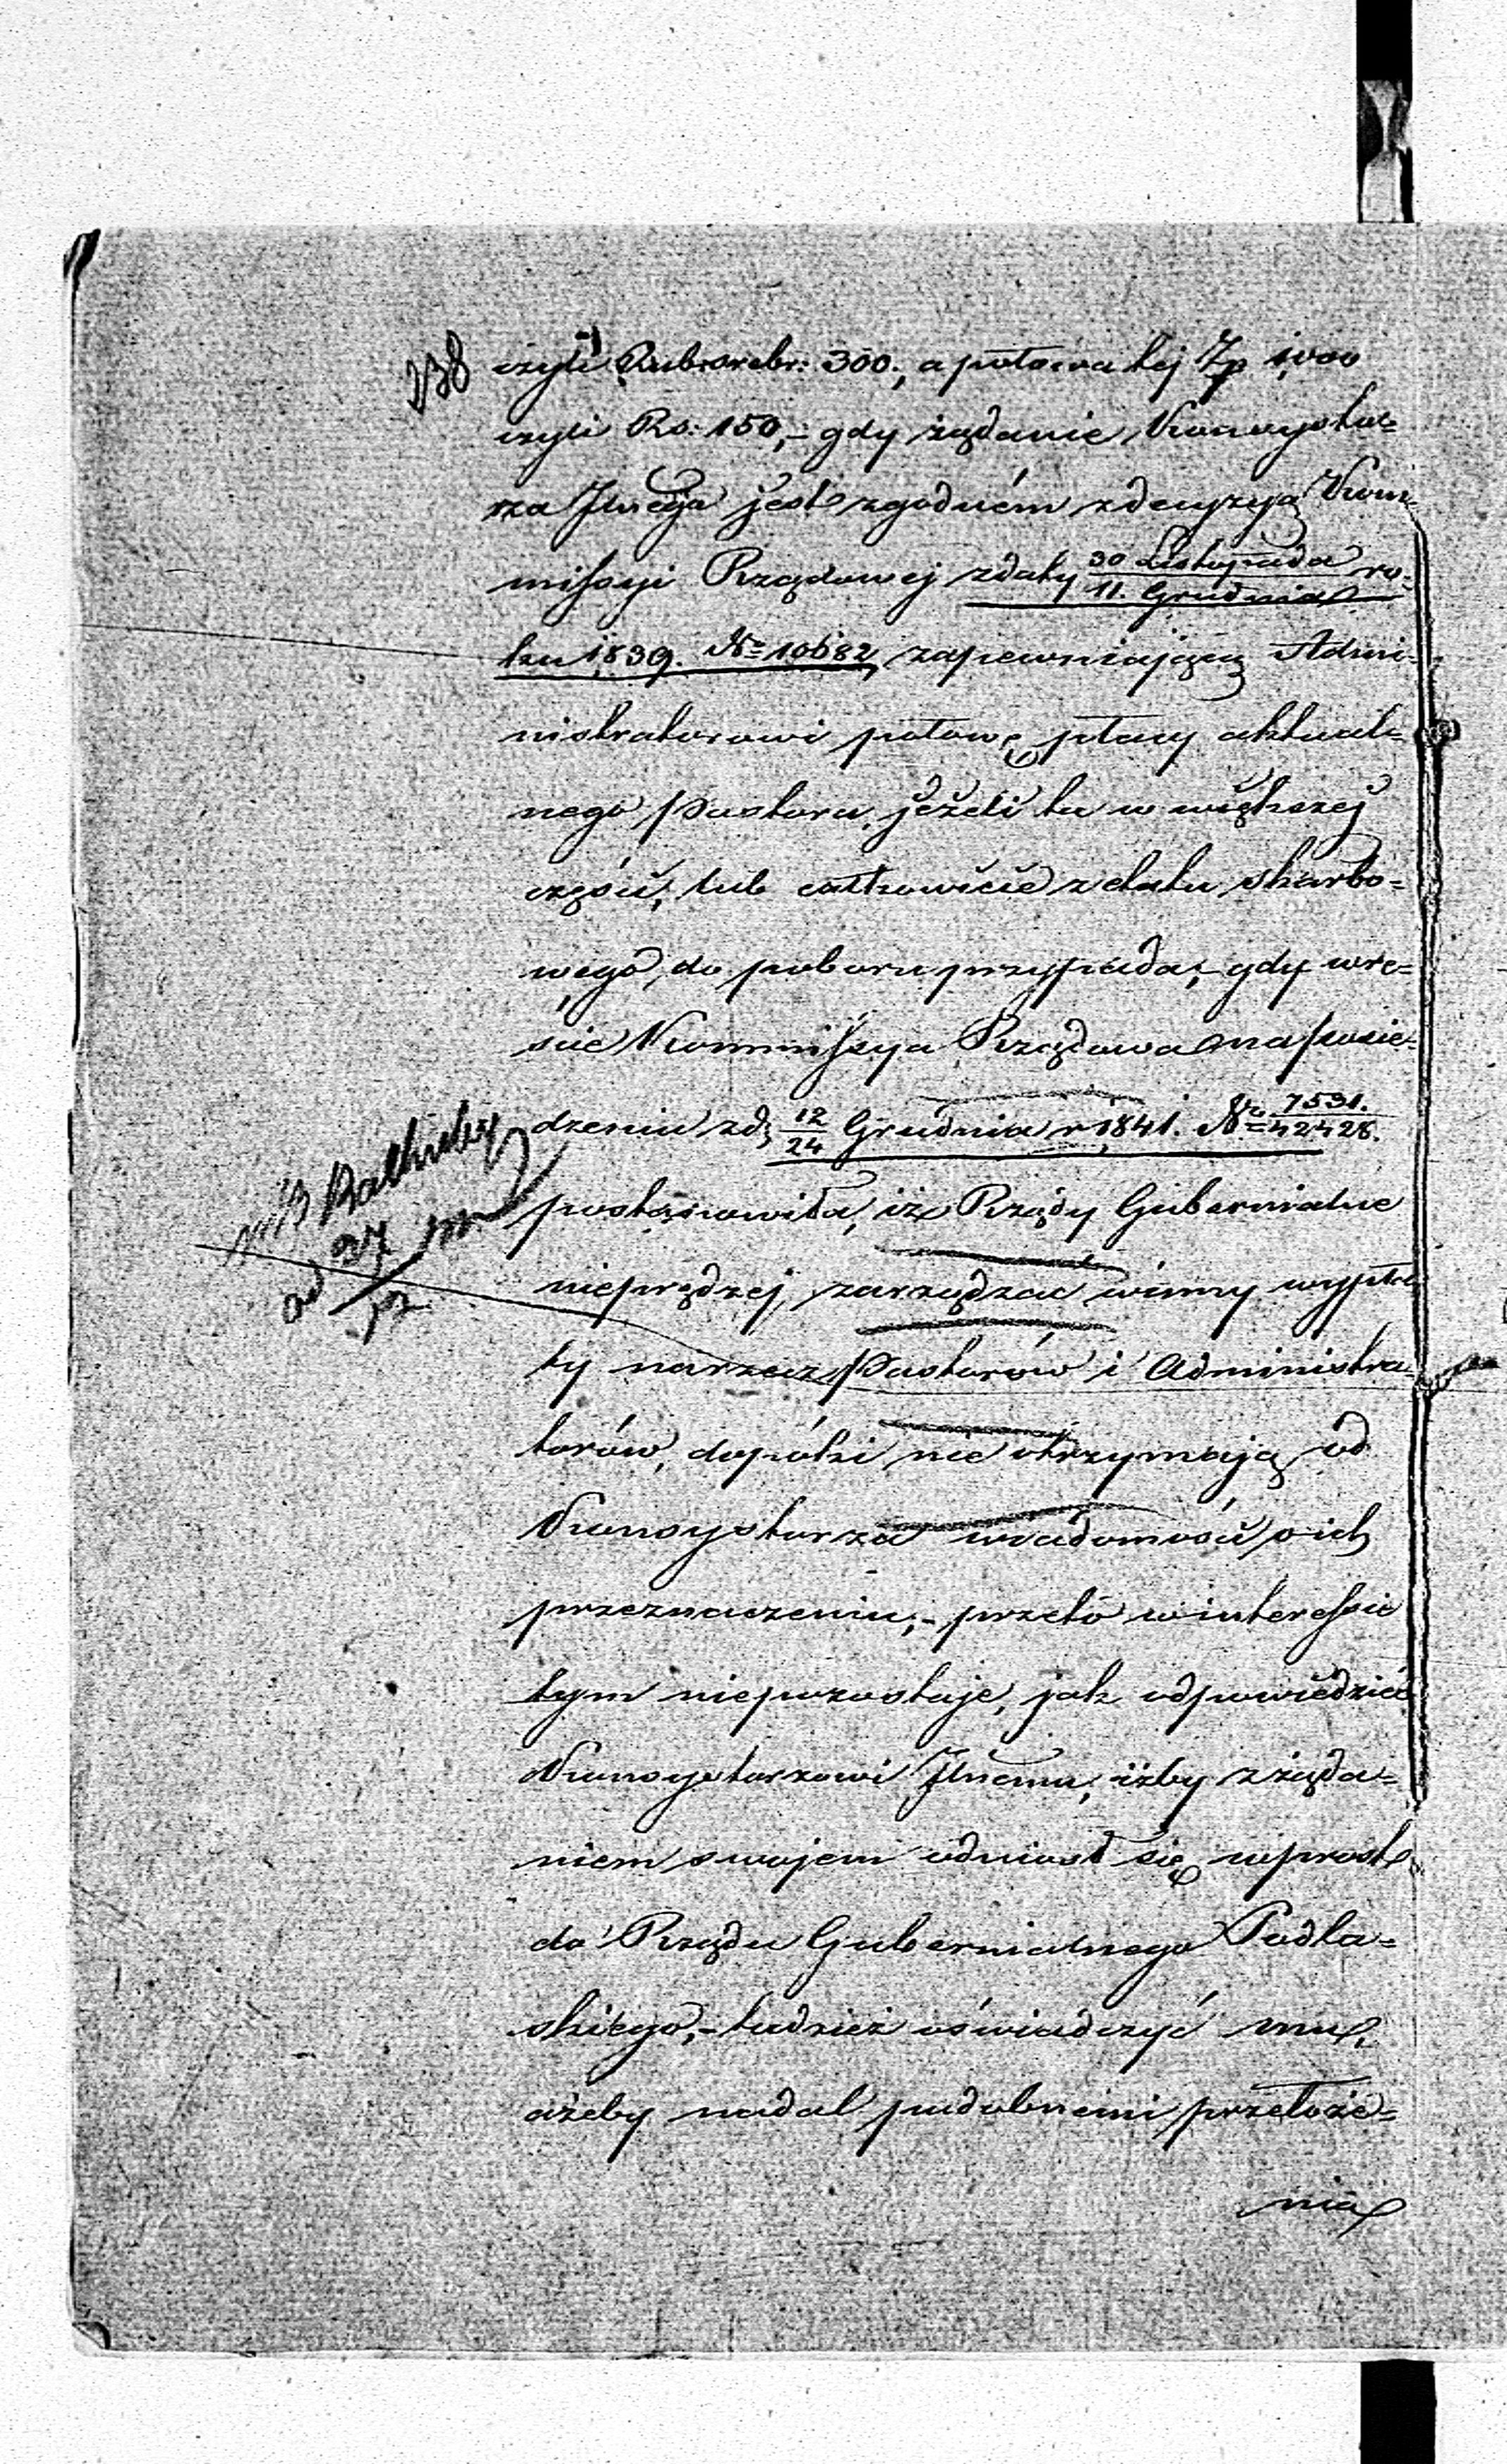 238
czyli Rubsrebr: 300., a połowa tej Zp 1,000
czyli Rs: 150,- gdy żądanie Konsystor=
rza Jlnego jest zgodném z decyzyą Kom=
missyi Rządowej z daty 30 Listopada / 11. Grudnia ro=
ku 1839. No 10682, zapewniającą Admi=
nistratorowi połowę płacy aktual=
nego Pastora, jeżeli ta w większej
części, lub całkowicie z etatu skarbo=
wego, do poboru przypada,- gdy wre=
ście Kommissya Rządowa na posie=
dzeniu z d. 12/24 Grudnia r. 1841. No 7531. / 42428.
postanowiła, iż Rządy Gubernialne
nieprędzej, zarządzać winny wypła=
ty na rzecz Pastorów i Administra=
torów, dopóki nie otrzymają od
Konsystorza wiadomość o ich
przeznaczeniu,- przeto w interessie
tym niepozostaje, jak odpowiedzieć
Konsystorzowi Jlnemu, iżby z żąda=
niem swojem odniosł się wprost
do Rządu Gubernialnego Podla=
skiego,- tudzież oświadczyć mu,
ażeby nadal podobnemi przełoże=
nia
ad 27 / 12